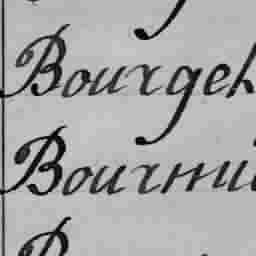 Bourgeh
Bournui